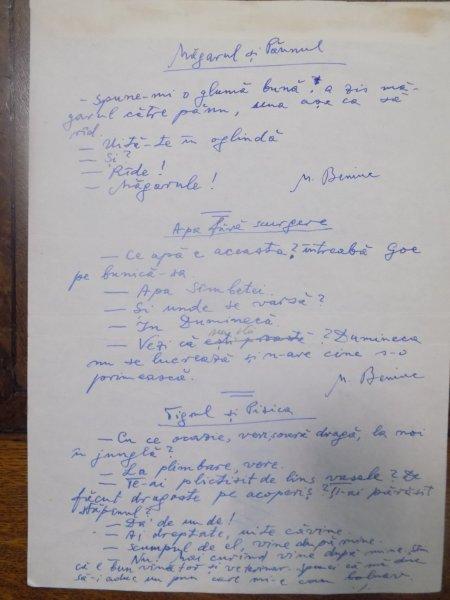 Măgarul și Păunul
- Spune-mi o glumă bună, a zis mă-
garul către păun, una așa ca să
rîd.
- Uită-te în oglindă
- Și?
- Rîde!
- Măgarule!
M. Beniuc
Apa fără scurgere
- Ce apă e aceasta? întreabă Goe
pe bunică-sa
- Apa Sîmbetei.
- Și unde se varsă?
- În Duminecă
- Vezi că ești proastă? Dumineca
nu se lucrează și n-are cine s-o
primească.
M. Beniuc
Tigrul și Pisica
- Cu ce ocazie, verișoară dragă, la noi
în junglă?
- La plimbare, vere.
- Te-ai plictisit de lins vasele? De
făcut dragoste pe acoperiș? Ți-ai părăsit
stăpînul?
- Da' de unde!
- Ai dreptate, uite că vine.
- Scumpul de el, vine după mine.
- Nu, mai curînd vine după mine, știu
că e bun vînător și veterinar. că mă duc
să-i aduc un pui care mi-e cam bolnav.